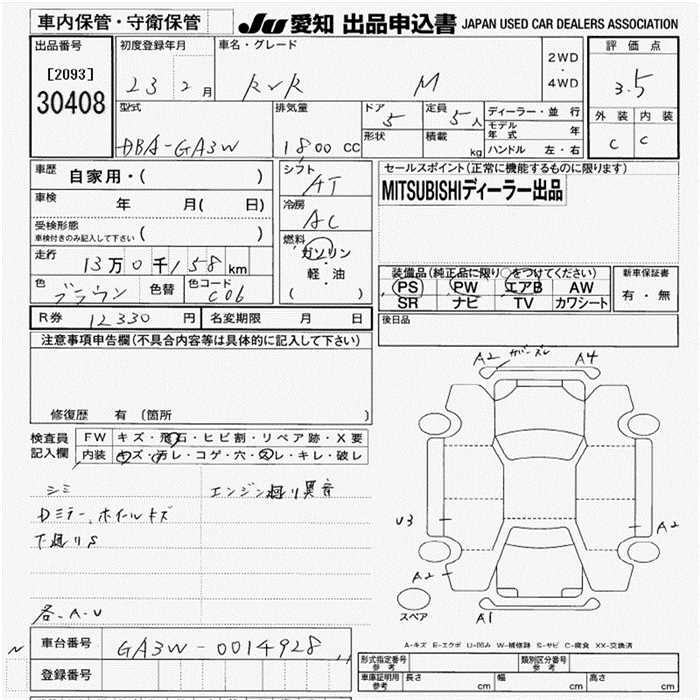 車内保管・守衛保管 JU 愛知 出品申込書 JAPAN USED CAR DEALERS ASSOCIATION
出品番号 初度登録年月 車名・グレード 2WD・4WD 評価点
[2093] 23 2月 RVR M 3.5
30408
型式 排気量 ドア 定員 ディーラー・並行 外装 内装
DBA-GA3W 1800 CC 5 5人 モデル年式 年 C C
形状 積載 kg ハンドル 左・右
車歴 自家用・( ) シフト AT セールスポイント(正常に機能するものに限ります)
車検 年 月( 日) 冷房 AC MITSUBISHIディーラー出品
受検形態 ( )
車検付きのみ記入して下さい
燃料 ガソリン・軽・油 ( )
走行 13万0千158km 装備品(純正品に限り○をつけてください) 新車保証書
PS PW エアB AW 有・無
色 ブラウン 色替 色コード C06 SR ナビ TV カワシート
R券 12330 円 名変期限 月 日 後日品
注意事項申告欄(不具合内容等は具体的に記入して下さい)
A2 ガーズレ A4
修復歴 有 (箇所 )
検査員 FW キズ・飛石・ヒビ割・リペア跡・X要
記入欄 内装 キズ・汚レ・コゲ・穴・スレ・キレ・破レ
シミ エンジン廻り異音
Dミラー、ホイールキズ U3 A2
下廻りS
A2
スペア A1
各-A-U
車台番号 GA3W-0014928
A-キズ E-エクボ U-凹み W-補修跡 S-サビ C-腐食 XX-交換済
登録番号 形式指定番号 参考 類別区分番号 参考
車庫証明用 参考 長さ cm 幅 cm 高さ cm